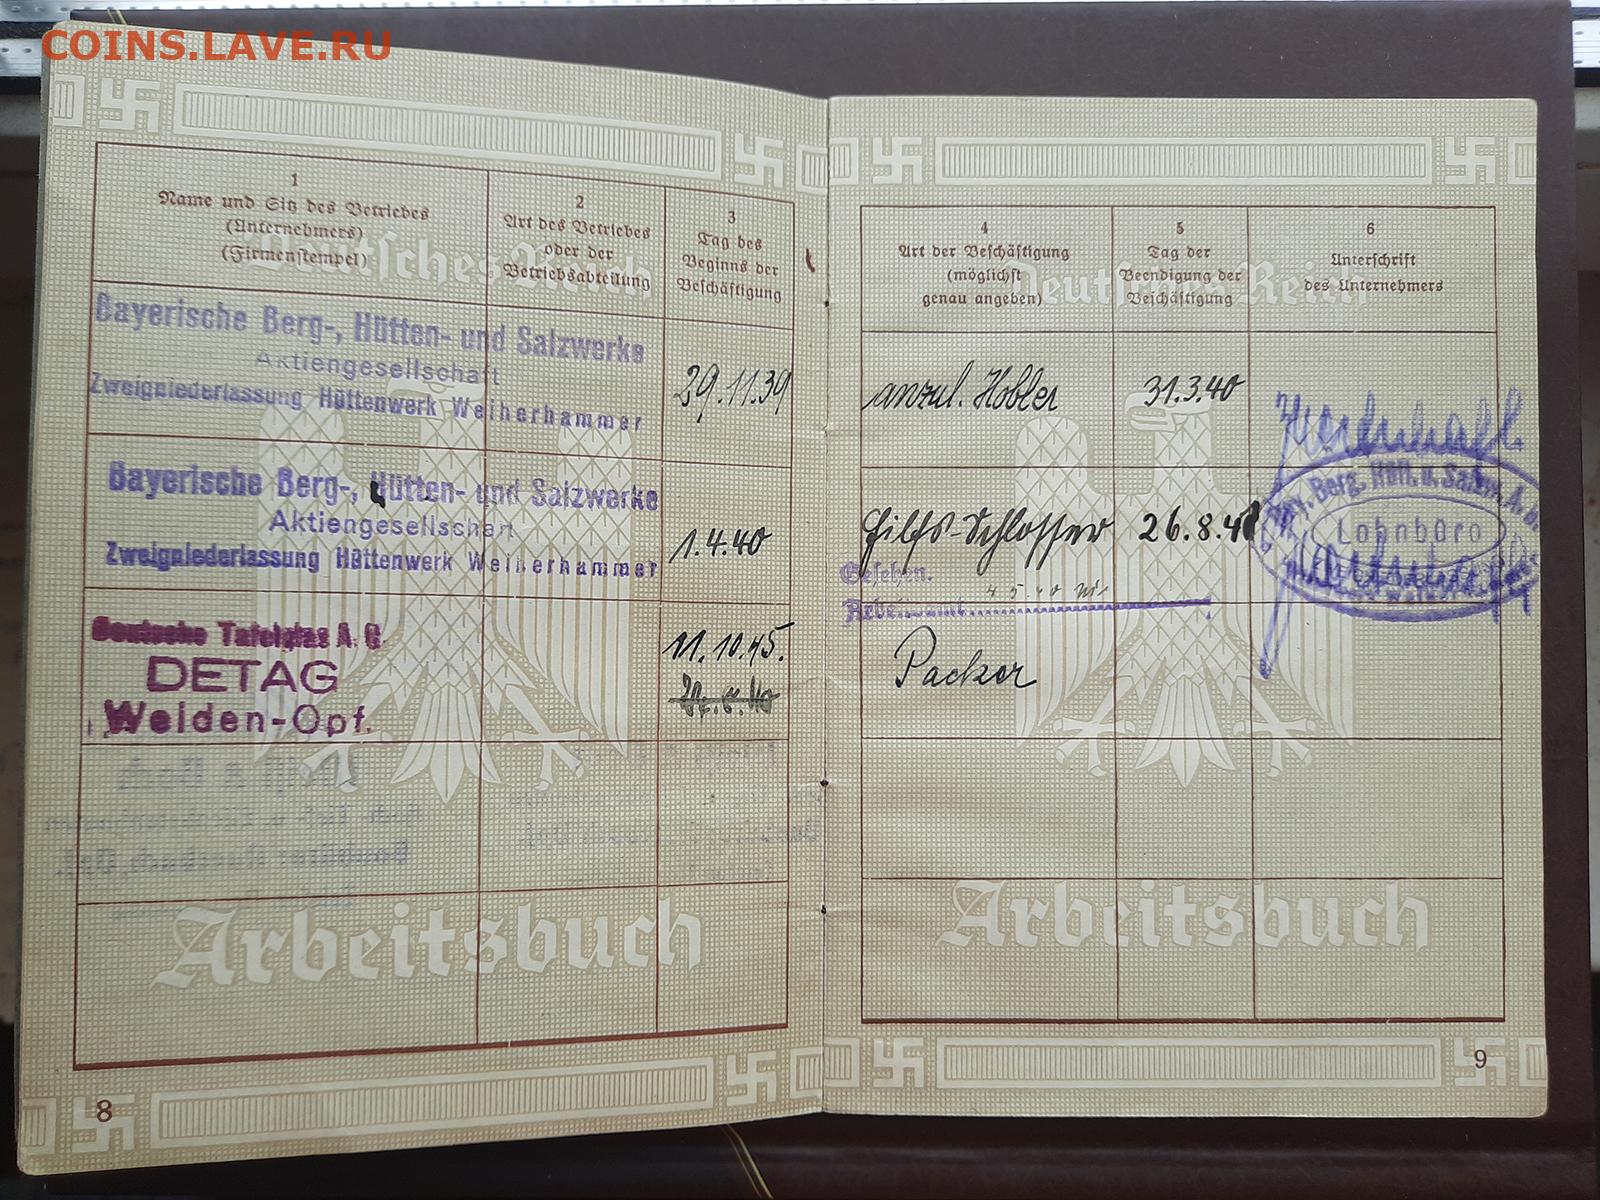 COINS.LAVE.RU
1
Name und Sitz des Betriebes
(Unternehmers)
(Firmenstempel)
2
Art des Betriebes
oder der
Betriebsabteilung
3
Tag des
Beginns der
Beschäftigung
4
Art der Beschäftigung
(möglichst
genau angeben)
5
Tag der
Beendigung der
Beschäftigung
6
Unterschrift
des Unternehmers
Deutsches Reich
Deutsches Reich
Bayerische Berg-, Hütten- und Salzwerke
Aktiengesellschaft
Zweigniederlassung Hüttenwerk Weiherhammer
29.11.39
anzul. Hobler
31.3.40
Bayerische Berg-, Hütten- und Salzwerke
Aktiengesellschaft
Zweigniederlassung Hüttenwerk Weiherhammer
1.4.40
Hilfs-Schlosser
26.8.40
Bay. Berg. Hütt. u. Salzw. A.G.
Lohnbüro
Gesehen.
Arbeitsamt
Deutsche Tafelglas A. G.
DETAG
Weiden-Opf.
11.10.45.
Packer
Arbeitsbuch
Arbeitsbuch
8
9